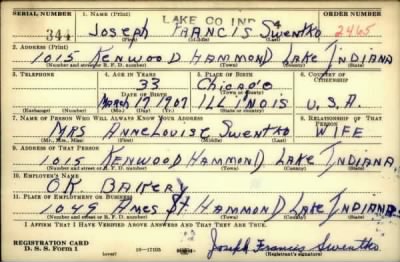 SERIAL NUMBER 1. NAME (Print) ORDER NUMBER
LAKE CO IND
344 JOSEPH FRANCIS SWENTKO 2465
(First) (Middle) (Last)
2. ADDRESS (Print)
1015 KENWOOD HAMMOND LAKE INDIANA
(Number and street or R. F. D. number) (Town) (County) (State)
3. TELEPHONE 4. AGE IN YEARS 5. PLACE OF BIRTH 6. COUNTRY OF CITIZENSHIP
33 Chicago
DATE OF BIRTH (Town or county)
March 17 1907 ILLINOIS U.S.A.
(Exchange) (Number) (Mo.) (Day) (Yr.) (State or country)
7. NAME OF PERSON WHO WILL ALWAYS KNOW YOUR ADDRESS 8. RELATIONSHIP OF THAT PERSON
MRS ANNE LOUISE SWENTKO WIFE
(Mr., Mrs., Miss) (First) (Middle) (Last)
9. ADDRESS OF THAT PERSON
1015 KENWOOD HAMMOND LAKE INDIANA
(Number and street or R. F. D. number) (Town) (County) (State)
10. EMPLOYER'S NAME
OK BAKERY
11. PLACE OF EMPLOYMENT OR BUSINESS
1049 AMES St HAMMOND LAKE INDIANA
(Number and street or R. F. D. number) (Town) (County) (State)
I AFFIRM THAT I HAVE VERIFIED ABOVE ANSWERS AND THAT THEY ARE TRUE.
REGISTRATION CARD
D. S. S. Form 1 (over) 16-17105 Joseph Francis Swentko
(Registrant's signature)